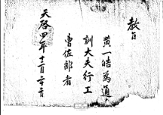 敎旨
黃一皓爲通
訓大夫行工
曹佐郞者
天啓四年十一月二十二日